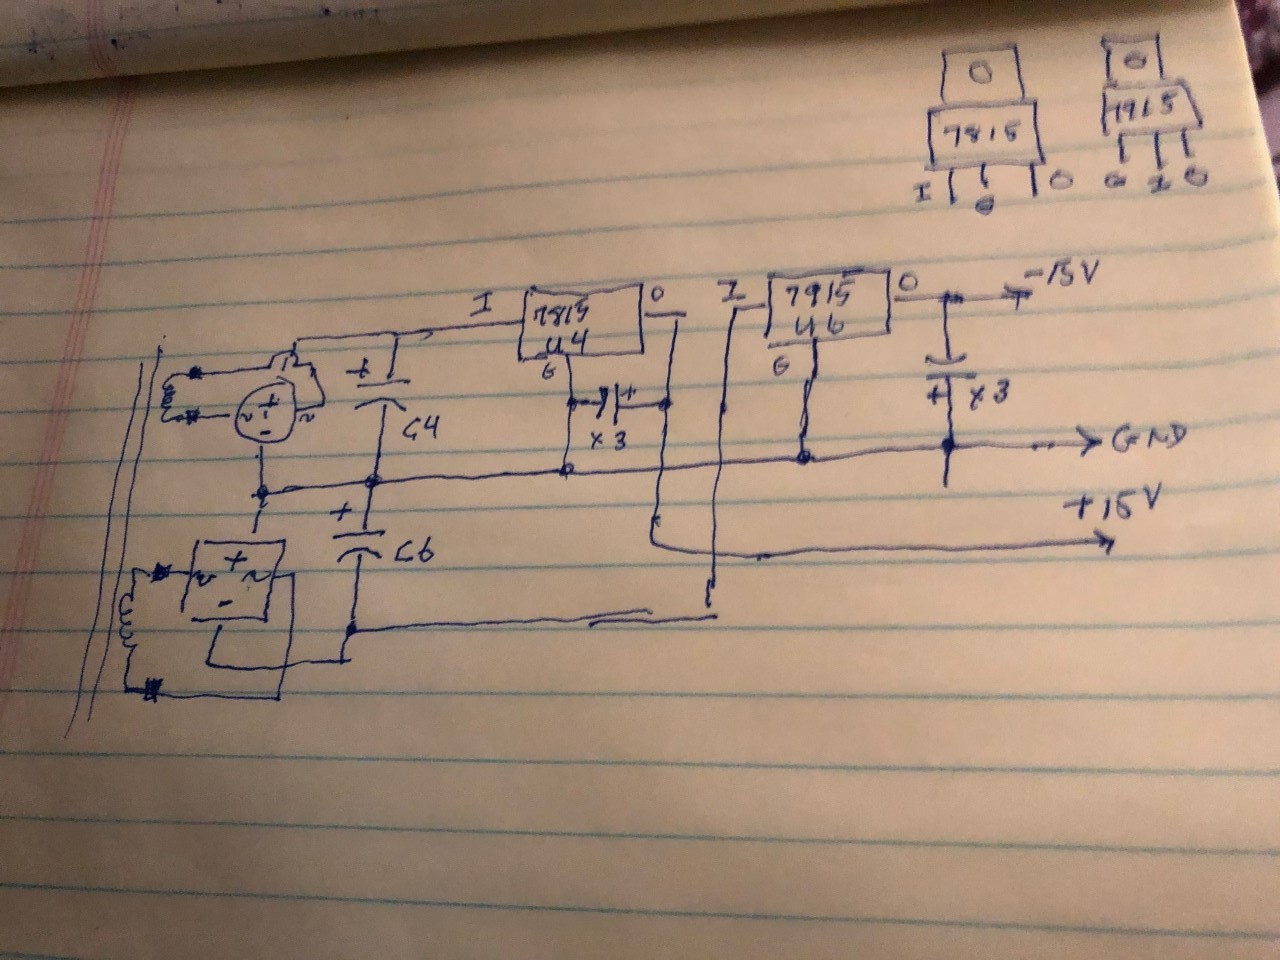 O O
7815 7915
I G O G I O
I 7815 O I 7915 O -15V
U4 U6
G G
+
+ x3
~ + ~
-
C4 x3 + GND
+ +15V
C6
~ + ~
-